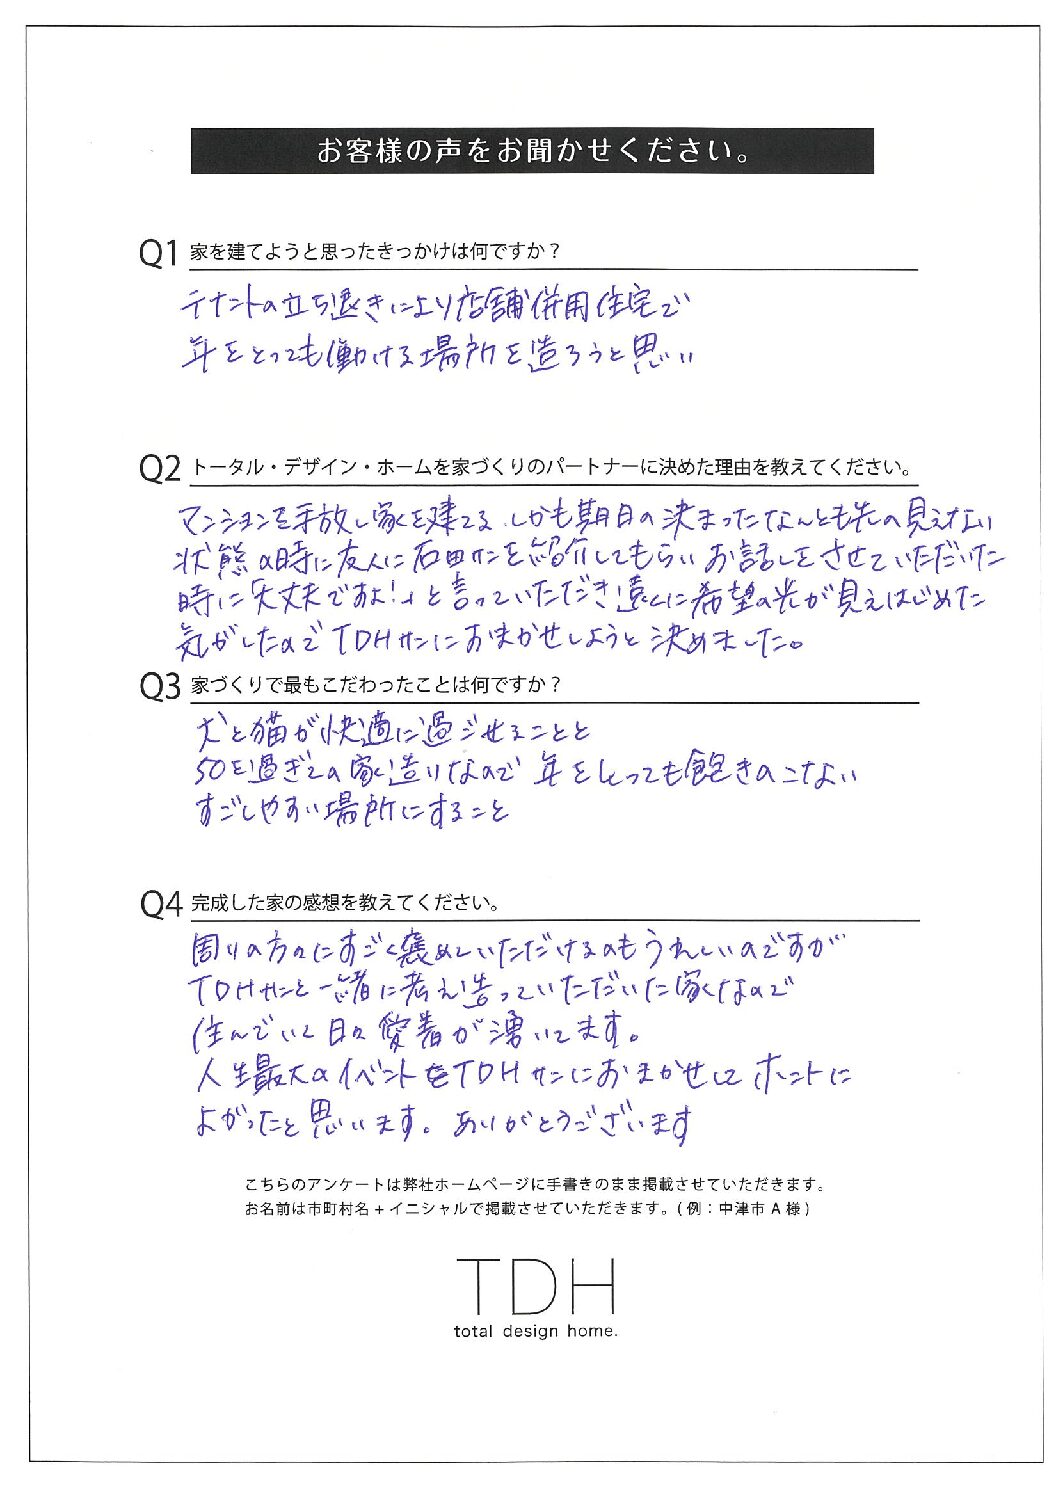 お客様の声をお聞かせください。
Q1 家を建てようと思ったきっかけは何ですか？
テナントの立ち退きにより店舗併用住宅で
年をとっても働ける場所を造ろうと思い
Q2 トータル・デザイン・ホームを家づくりのパートナーに決めた理由を教えてください。
マンションを手放し家を建てる しかも期日の決まったなんとも先の見えない
状態の時に友人に石田サンを紹介してもらい お話しをさせていただいた
時に「大丈夫ですよ！」と言っていただき遠くに希望の光が見えはじめた
気がしたので TDHサンにおまかせしようと決めました。
Q3 家づくりで最もこだわったことは何ですか？
犬と猫が快適に過ごせることと
50を過ぎての家造りなので 年をとっても飽きのこない
すごしやすい場所にすること
Q4 完成した家の感想を教えてください。
周りの方々にすごく褒めていただけるのもうれしいのですが
TDHサンと一緒に考え造っていただいた家なので
住んでいて日々愛着が湧いてます。
人生最大のイベントをTDHサンにおまかせして ホントに
よかったと思います。ありがとうございます
こちらのアンケートは弊社ホームページに手書きのまま掲載させていただきます。
お名前は市町村名＋イニシャルで掲載させていただきます。(例：中津市 A 様)
TDH
total design home.